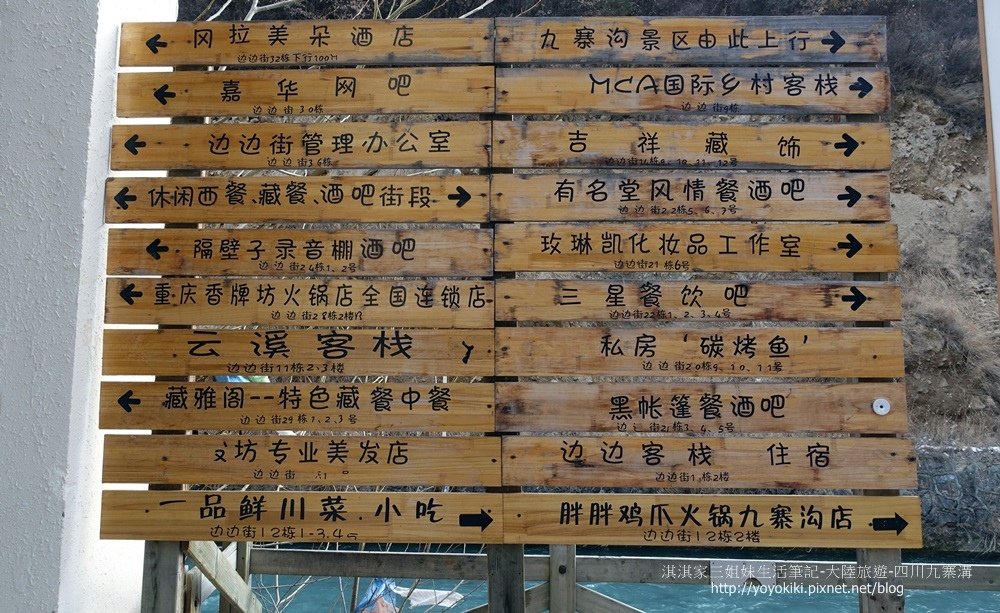 冈拉美朵酒店
边边街32栋下行100M
嘉华网吧
边边街30栋
边边街管理办公室
边边街36栋
休闲西餐、藏餐、酒吧街段
隔壁子录音棚酒吧
边边街24栋1、2号
重庆香牌坊火锅店全国连锁店
边边街28栋2楼
云溪客栈
边边街11栋2-3楼
藏雅阁--特色藏餐中餐
边边街29栋1、2、3号
坊专业美发店
边边街
一品鲜川菜.小吃
边边街12栋1-3.4
九寨沟景区由此上行
MCA国际乡村客栈
边边街9栋
吉祥藏饰
边边街14栋9、10、11、12号
有名堂风情餐酒吧
边边街22栋5、6、7号
玫琳凯化妆品工作室
边边街21栋6号
三星餐饮吧
边边街22栋1、2、3、4号
私房‘碳烤鱼’
边边街20栋9、10、11号
黑帐篷餐酒吧
边边街21栋3、4、5号
边边客栈 住宿
边边街1栋2楼
胖胖鸡爪火锅九寨沟店
边边街12栋2楼
淇淇家三姐妹生活筆記-大陸旅遊-四川九寨溝
http://yoyokiki.pixnet.net/blog